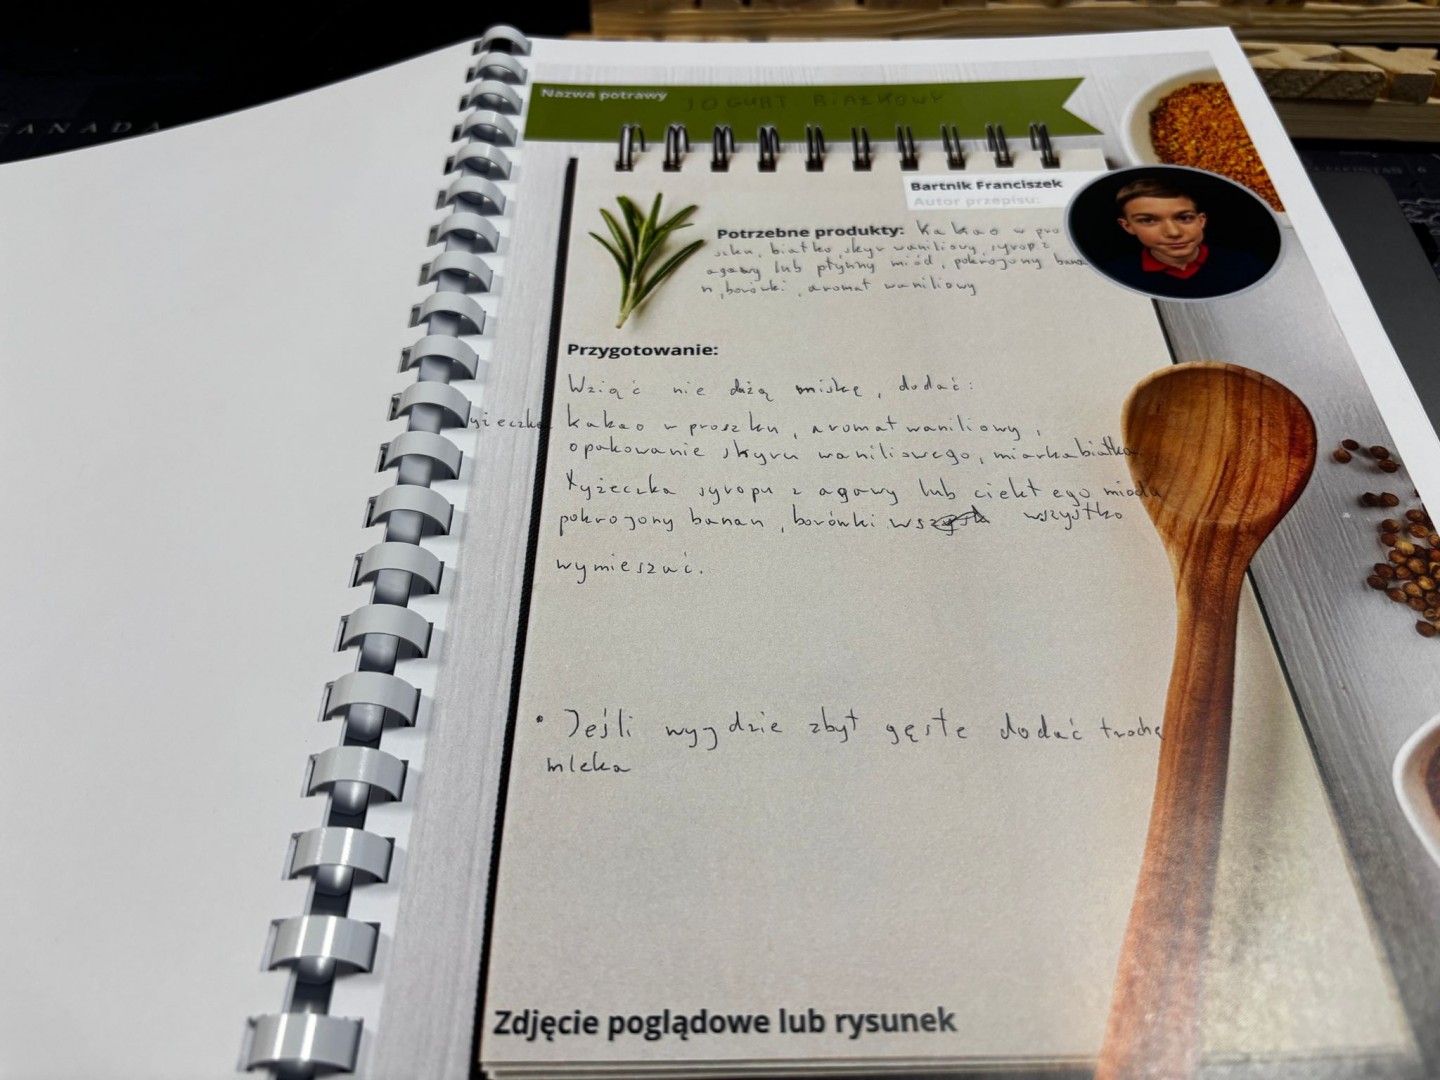 CANADA
Nazwa potrawy JOGURT BIAŁKOWY
Bartnik Franciszek
Autor przepisu:
Potrzebne produkty: Kakao w pro
szku, białko, skyr waniliowy, syrop z
agawy lub płynny miód, pokrojony bana
n, borówki, aromat waniliowy
Przygotowanie:
Wziąć nie dużą miskę, dodać:
kakao w proszku, aromat waniliowy,
opakowanie skyru waniliowego, miarka białka
Łyżeczka syropu z agawy lub ciekłego miodu
pokrojony banan, borówki wszystko
wymieszać.
• Jeśli wyjdzie zbyt gęste dodać trochę
mleka
Zdjęcie poglądowe lub rysunek